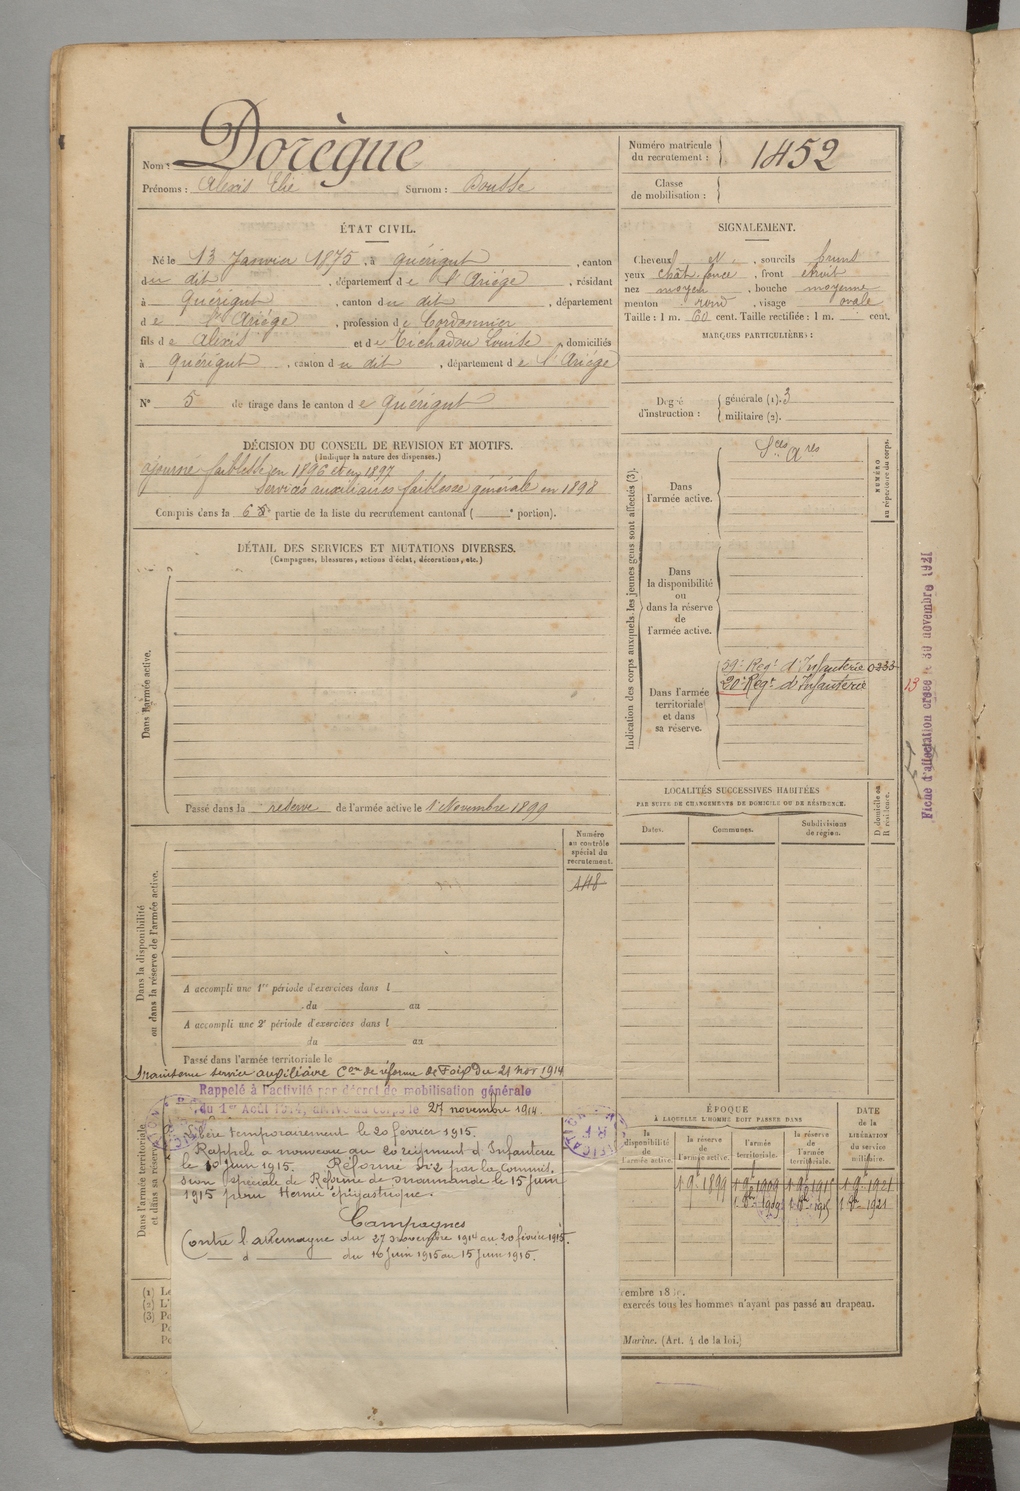 Nom : Dorègue
Prénoms : Alexis Elie Surnom : Bousse
Numéro matricule
du recrutement : 1452
Classe
de mobilisation :
ÉTAT CIVIL.
Né le 13 Janvier 1875, à Quérigut, canton
du dit, département de l'Ariège, résidant
à Quérigut, canton du dit, département
de l'Ariège, profession de Cordonnier
fils de Alexis et de Tichadou Louise, domiciliés
à Quérigut, canton du dit, département de l'Ariège
N° 5 de tirage dans le canton de Quérigut
SIGNALEMENT.
Cheveux et, sourcils bruns
yeux chât. foncé, front étroit
nez moyen, bouche moyenne
menton rond, visage ovale
Taille : 1 m. 60 cent. Taille rectifiée : 1 m. cent.
MARQUES PARTICULIÈRES :
Degré
d'instruction :
générale (1). 3
militaire (2).
DÉCISION DU CONSEIL DE REVISION ET MOTIFS.
(Indiquer la nature des dispenses.)
ajourné faiblesse en 1896 et en 1897
services auxiliaires faiblesse générale en 1898
Compris dans la 6e partie de la liste du recrutement cantonal ( e portion).
DÉTAIL DES SERVICES ET MUTATIONS DIVERSES.
(Campagnes, blessures, actions d'éclat, décorations, etc.)
Dans l'armée active.
Passé dans la réserve de l'armée active le 1er Novembre 1899
Indication des corps auxquels les jeunes gens sont affectés (3).
NUMÉRO
au répertoire du corps.
Dans
l'armée active.
Sces Ares
Dans
la disponibilité
ou
dans la réserve
de
l'armée active.
Dans l'armée
territoriale
et dans
sa réserve.
59e Regt d'Infanterie 0233
20e Regt d'Infanterie
13
Fiche d'affectation créée le 30 novembre 1921
LOCALITÉS SUCCESSIVES HABITÉES
PAR SUITE DE CHANGEMENTS DE DOMICILE OU DE RÉSIDENCE.
Dates.
Communes.
Subdivisions
de région.
D domicile ou
R résidence.
Numéro
au contrôle
spécial du
recrutement.
448
Dans la disponibilité
ou dans la réserve de l'armée active.
A accompli une 1re période d'exercices dans l
du au
A accompli une 2e période d'exercices dans l
du au
Passé dans l'armée territoriale le
Maintenu service auxiliaire Con de réforme de Foix du 21 nov 1914
Dans l'armée territoriale
et dans sa réserve
Rappelé à l'activité par décret de mobilisation générale
du 1er Août 1914, arrivé au corps le 27 novembre 1914.
Libéré temporairement le 20 février 1915.
Rappelé à nouveau au 20 régiment d'Infanterie
le 10 juin 1915. Réformé N°2 par la Commis.
sion spéciale de Réforme de Marmande le 15 juin
1915 pour Hernie épigastrique.
Campagnes
Contre l'allemagne du 27 novembre 1914 au 20 février 1915.
d du 10 juin 1915 au 15 juin 1915.
ÉPOQUE
À LAQUELLE L'HOMME DOIT PASSER DANS
la
disponibilité
de
l'armée active.
la réserve
de
l'armée active.
l'armée
territoriale.
la réserve
de
l'armée
territoriale.
DATE
de la
LIBÉRATION
du service
militaire.
1 9e 1899 1 9e 1909 1 9e 1915 1 9e 1921
1 8e 1909 1 8e 1915 1 8e 1921
(1)
(2) L'
(3)
exercés tous les hommes n'ayant pas passé au drapeau.
Marine. (Art. 4 de la loi.)